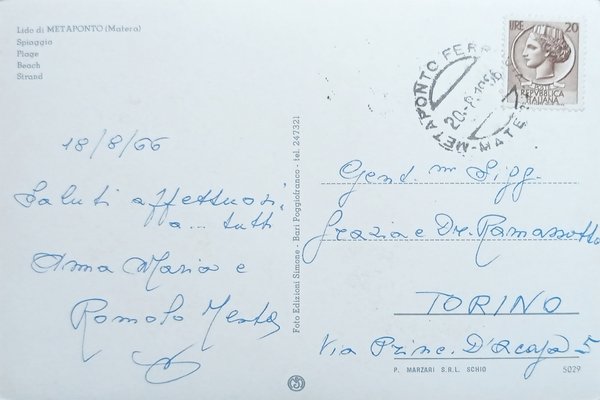 Lido di METAPONTO (Matera)
Spiaggia
Plage
Beach
Strand
18/8/66
Saluti affettuosi,
a... tutti
Anna Maria e
Romolo
Foto Edizioni Simone - Bari Poggiofranco - tel. 247321
LIRE 20
REPVBBLICA
ITALIANA
METAPONTO FERR
20.-8.1966
MATE
Gent.m Sigg.
Grazia e Dr. Ramassotto
TORINO
Via Princ. D'Acaja 5
P. MARZARI S.R.L. SCHIO
5029